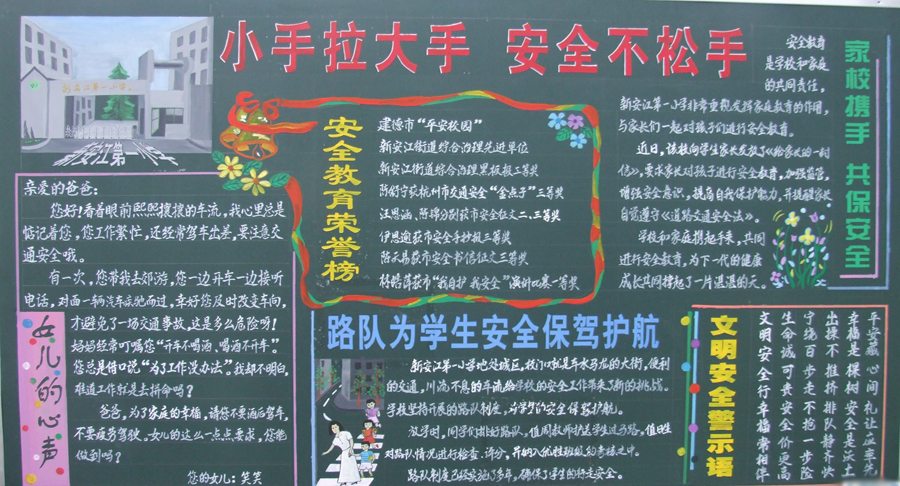 小手拉大手 安全不松手
新安江第一小学
新安江第一小学
亲爱的爸爸:
您好!看着眼前熙熙攘攘的车流,我心里总是
惦记着您,您工作繁忙,还经常驾车出差,要注意交
通安全哦。
有一次,您带我去郊游,您一边开车一边接听
电话,对面一辆汽车疾驰而过,幸好您及时改变车向,
才避免了一场交通事故,这是多么危险呀!
妈妈经常叮嘱您“开车不喝酒、喝酒不开车”。
您总是借口说“为了工作没办法”。我却不明白,
难道工作就是去拼命吗?
爸爸,为了家庭的幸福,请您不要酒后驾车,
不要疲劳驾驶。女儿的这么一点点要求,您能
做到吗?
您的女儿:笑笑
女儿的心声
安全教育荣誉榜
建德市“平安校园”
新安江街道综合治理先进单位
新安江街道综合治理黑板报三等奖
获杭州市交通安全“金点子”三等奖
汪思涵、陈婷分别获市安全征文二、三等奖
获市安全手抄报三等奖
获市安全书信征文三等奖
获市“我自护 我安全”演讲比赛一等奖
路队为学生安全保驾护航
新安江第一小学地处城区,校门口就是车水马龙的大街,便利
的交通,川流不息的车流给学校的安全工作带来了新的挑战。
学校坚持开展的路队制度,为学生的安全保驾护航。
放学时,同学们排好路队,值周教师护送学生过马路,值日生
对路队情况进行检查、评分,并纳入优胜班级的考核之中。
路队制度已经实施了多年,确保了学生的行走安全。
安全教育
是学校和家庭
的共同责任,
新安江第一小学非常重视发挥家庭教育的作用,
与家长们一起对孩子们进行安全教育。
近日,该校向学生家长发放了《给家长的一封
信》,要求家长对孩子进行安全教育,加强监管,
增强安全意识,提高自我保护能力,并提醒家长
自觉遵守《道路交通安全法》。
学校和家庭携起手来,共同
进行安全教育,为下一代的健康
成长共同撑起了一片湛湛的天。
家校携手 共保安全
文明安全警示语
平安藏心间 礼让应率先
幸福是棵树 安全是沃土
出操不推挤 排队静齐快
宁绕百步走 不抢一步险
生命诚可贵 安全价更高
文明安全行 幸福常相伴